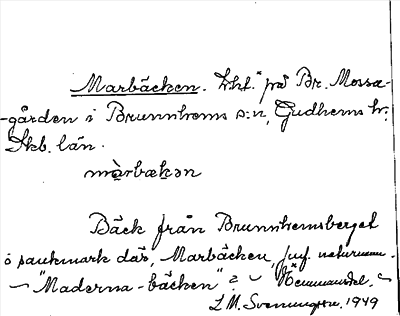 Marbäcken. Lht. på Br. Mossa-
-gården i Brunnhems s:n, Gudhems hr.
Skb. län.
màrbækən
Bäck från Brunnhemsberget
o sankmark där, Marbäcken, juf naturnamn.
"Maderna-bäcken" ?
L.M. Svenungsson. 1949